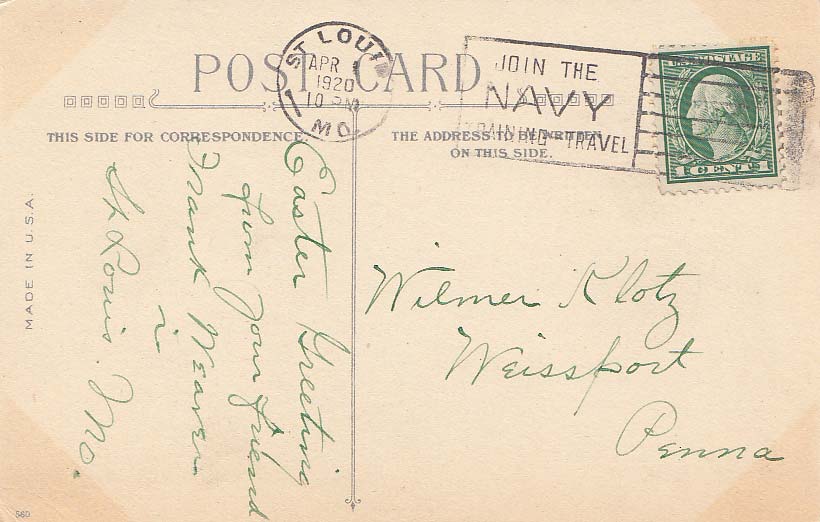 POST CARD
ST LOUIS
APR
1920
10 PM
MO.
JOIN THE
NAVY
TRAINING TRAVEL
U.S. POSTAGE
1 CENTS 1
THIS SIDE FOR CORRESPONDENCE.
THE ADDRESS TO BE WRITTEN
ON THIS SIDE.
Easter Greeting
from your friend
Frank Weaver
in
St Louis. Mo.
Wilmer Klotz
Weissport
Penna
MADE IN U.S.A.
560